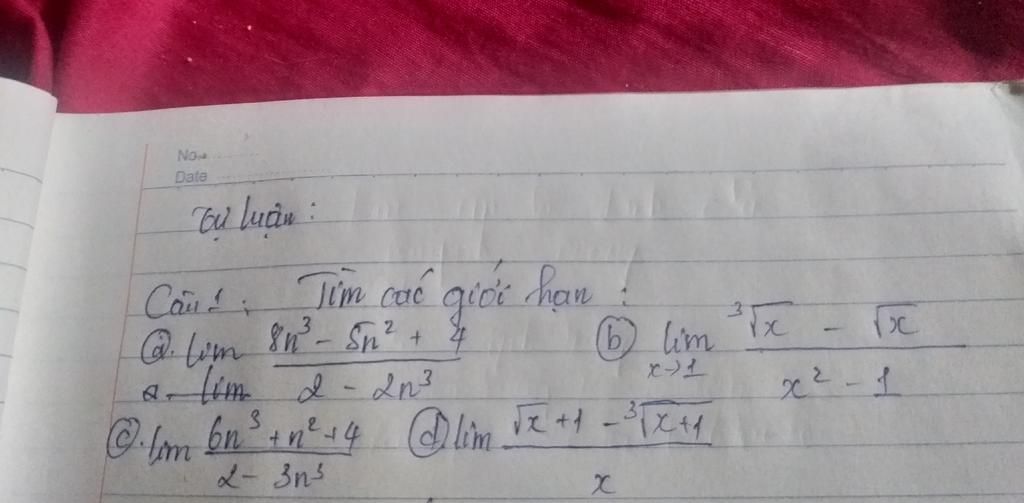 No.
Date
Tự luận :
Câu 1 : Tìm các giới hạn :
a. lim (8n³ - 5n² + 4)/(2 - 2n³) b lim x→1 (³√x - √x)/(x² - 1)
2. lim
c. lim (6n³ + n² + 4)/(2 - 3n³) d lim (√x + 1 - ³√(x+1))/x